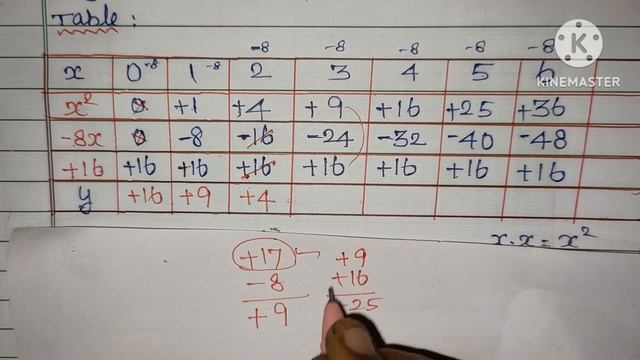 Table:
-8 -8 -8 -8 -8
x 0-8 1-8 2 3 4 5 6
x² 0 +1 +4 +9 +16 +25 +36
-8x 0 -8 -16 -24 -32 -40 -48
+16 +16 +16 +16 +16 +16 +16 +16
y +16 +9 +4
x.x = x²
+17 +9
-8 +16
+9 25
K
KINEMASTER